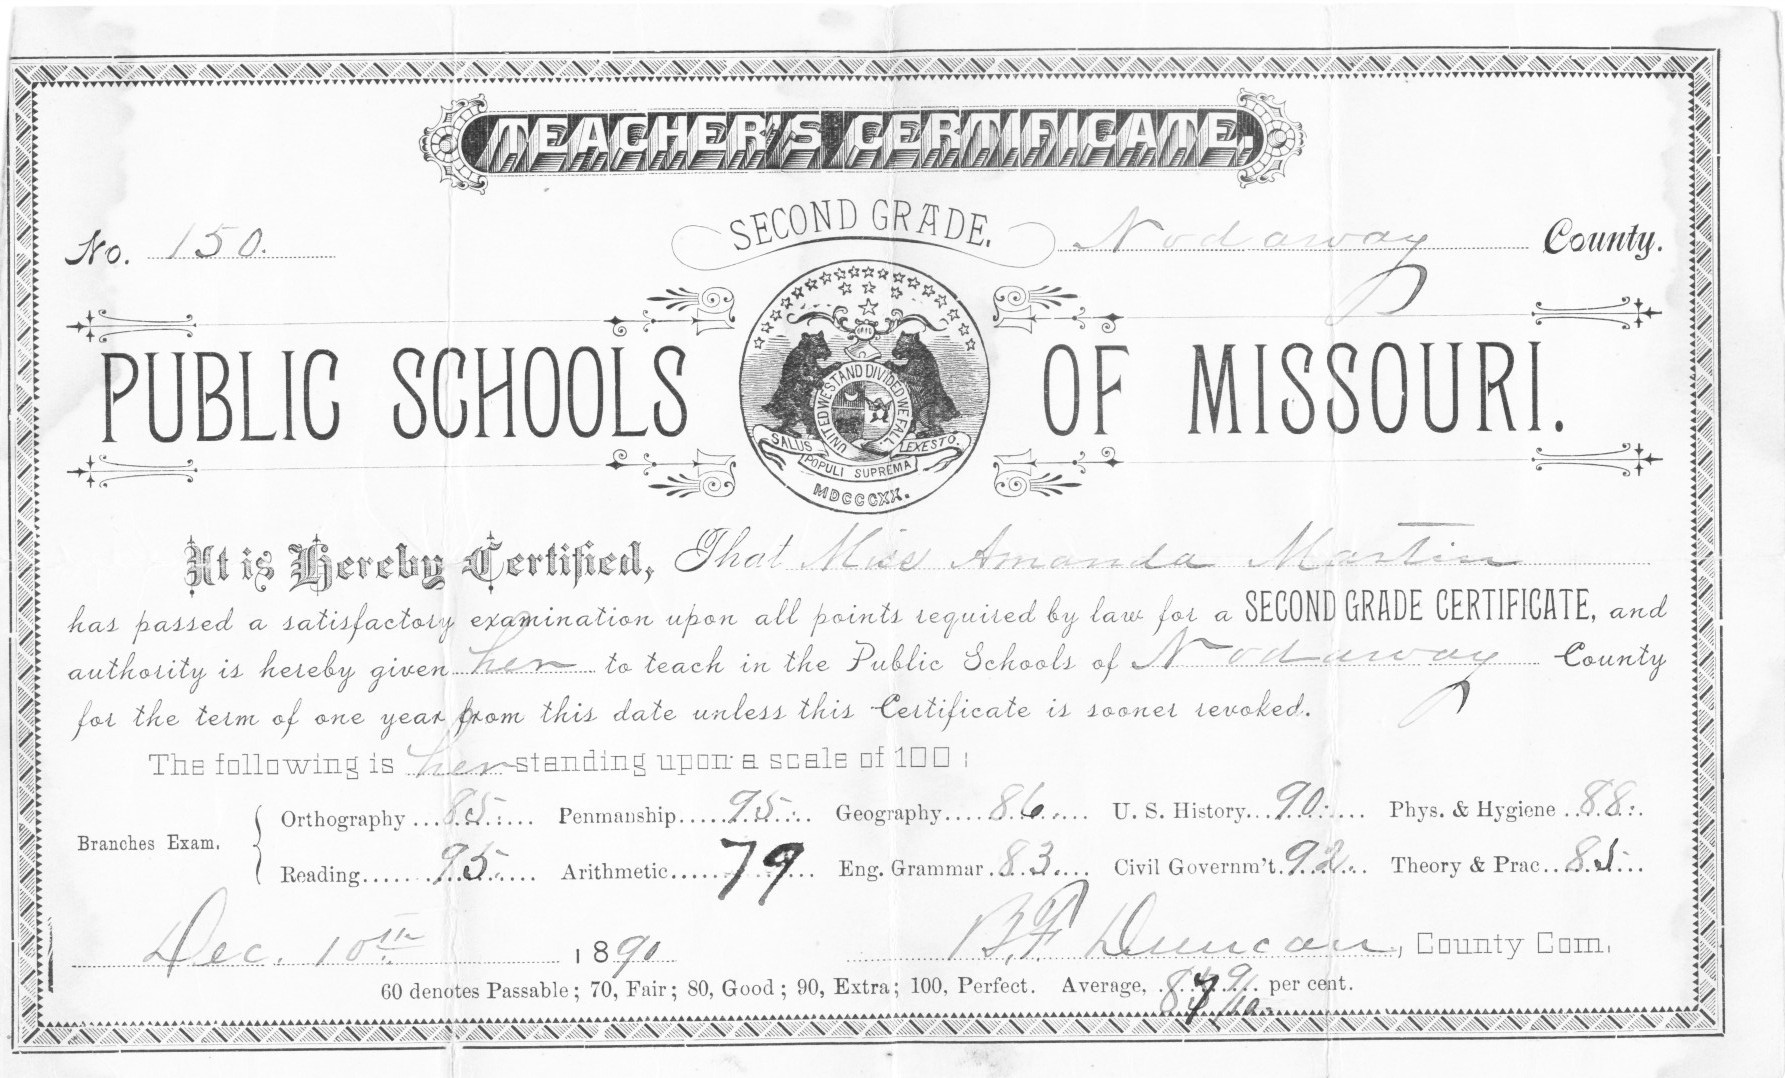 TEACHER'S CERTIFICATE.
SECOND GRADE.
No. 150.
Nodaway County.
PUBLIC SCHOOLS OF MISSOURI.
UNITED WE STAND DIVIDED WE FALL
SALUS POPULI SUPREMA LEX ESTO.
MDCCCXX.
It is Hereby Certified, That Miss Amanda Martin
has passed a satisfactory examination upon all points required by law for a SECOND GRADE CERTIFICATE, and
authority is hereby given her to teach in the Public Schools of Nodaway County
for the term of one year from this date unless this Certificate is sooner revoked.
The following is her standing upon a scale of 100:
Branches Exam.
Orthography 85 Penmanship 95 Geography 86 U. S. History 90 Phys. & Hygiene 88
Reading 95 Arithmetic 79 Eng. Grammar 83 Civil Governm't 92 Theory & Prac 85
Dec. 10th 1890 B. F. Duncan, County Com.
60 denotes Passable; 70, Fair; 80, Good; 90, Extra; 100, Perfect. Average, per cent.